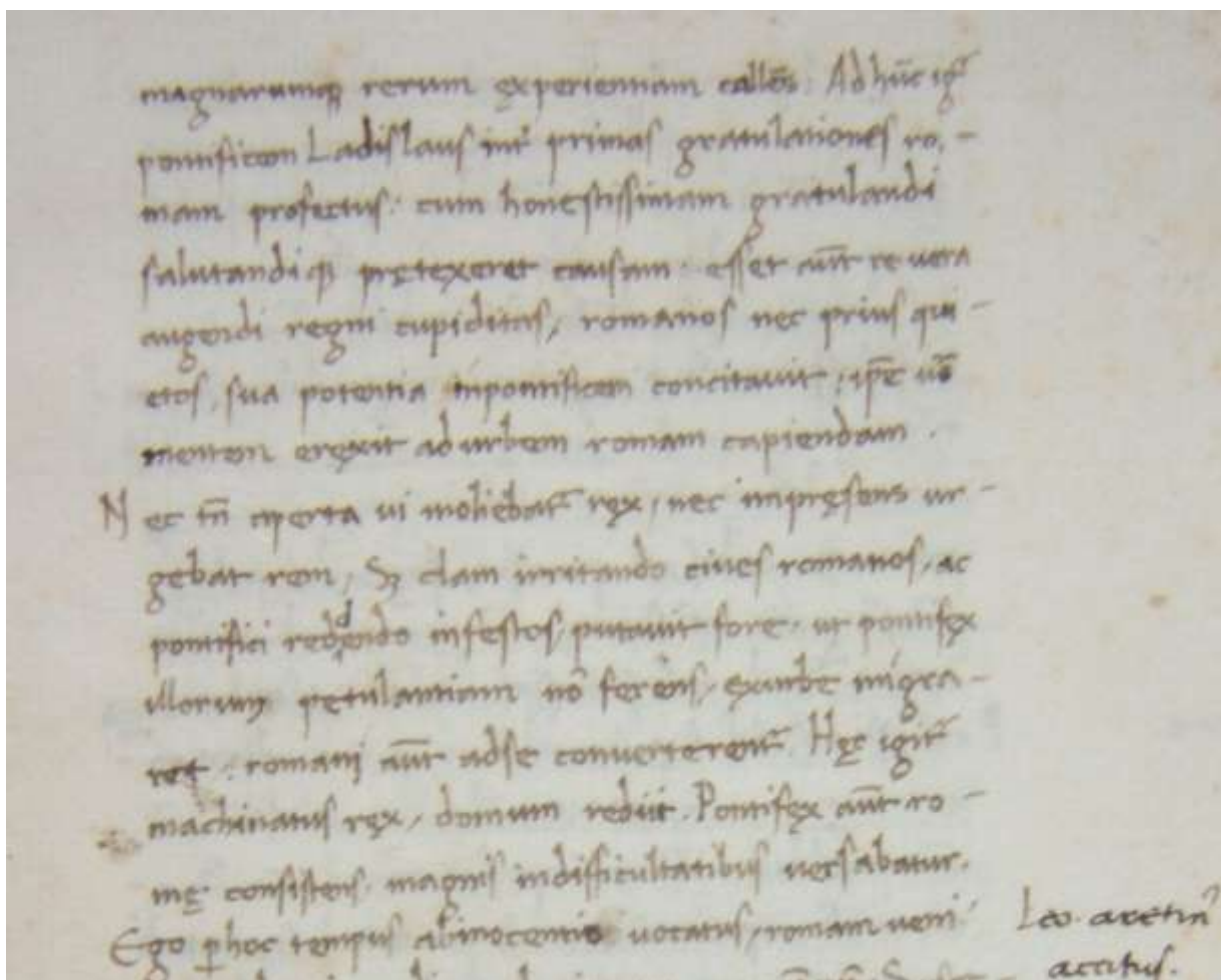 magnarumq; rerum ęxperientiam callēs. Ad hūc igr̃
pontificem Ladislaus int̃ primas gratulationes ro,-
mam profectus: cum honestissimam gratulandi
salutandiq; prętexeret causam. esset aūt re vera
augendi regni cupiditas, romanos nec prius qui-
etos, sua potentia inpontificem concitavit, ip̄e uō
mentem eręxit ad urbem romam capiendam.
Nec tn̄ aperta ui moliebat̃ ręx, nec impręsens ur-
gebat rem, Sꝫ clam irritando cives romanos, ac
pontifici reddendo infestos, putavit fore, ut pontifęx
illorum petulantiam nō ferens, ęxurbe migra-
ret. romani aūt adse converterent̃. Hęc igit̃
machinatus ręx, domum rediit. Pontifęx aūt ro-
mę consistens. magnis indifficultatibus versabatur.
Ego ꝑhoc tempus abinocentio vocatus, romam veni
Leo. aretin⁹
accitus.